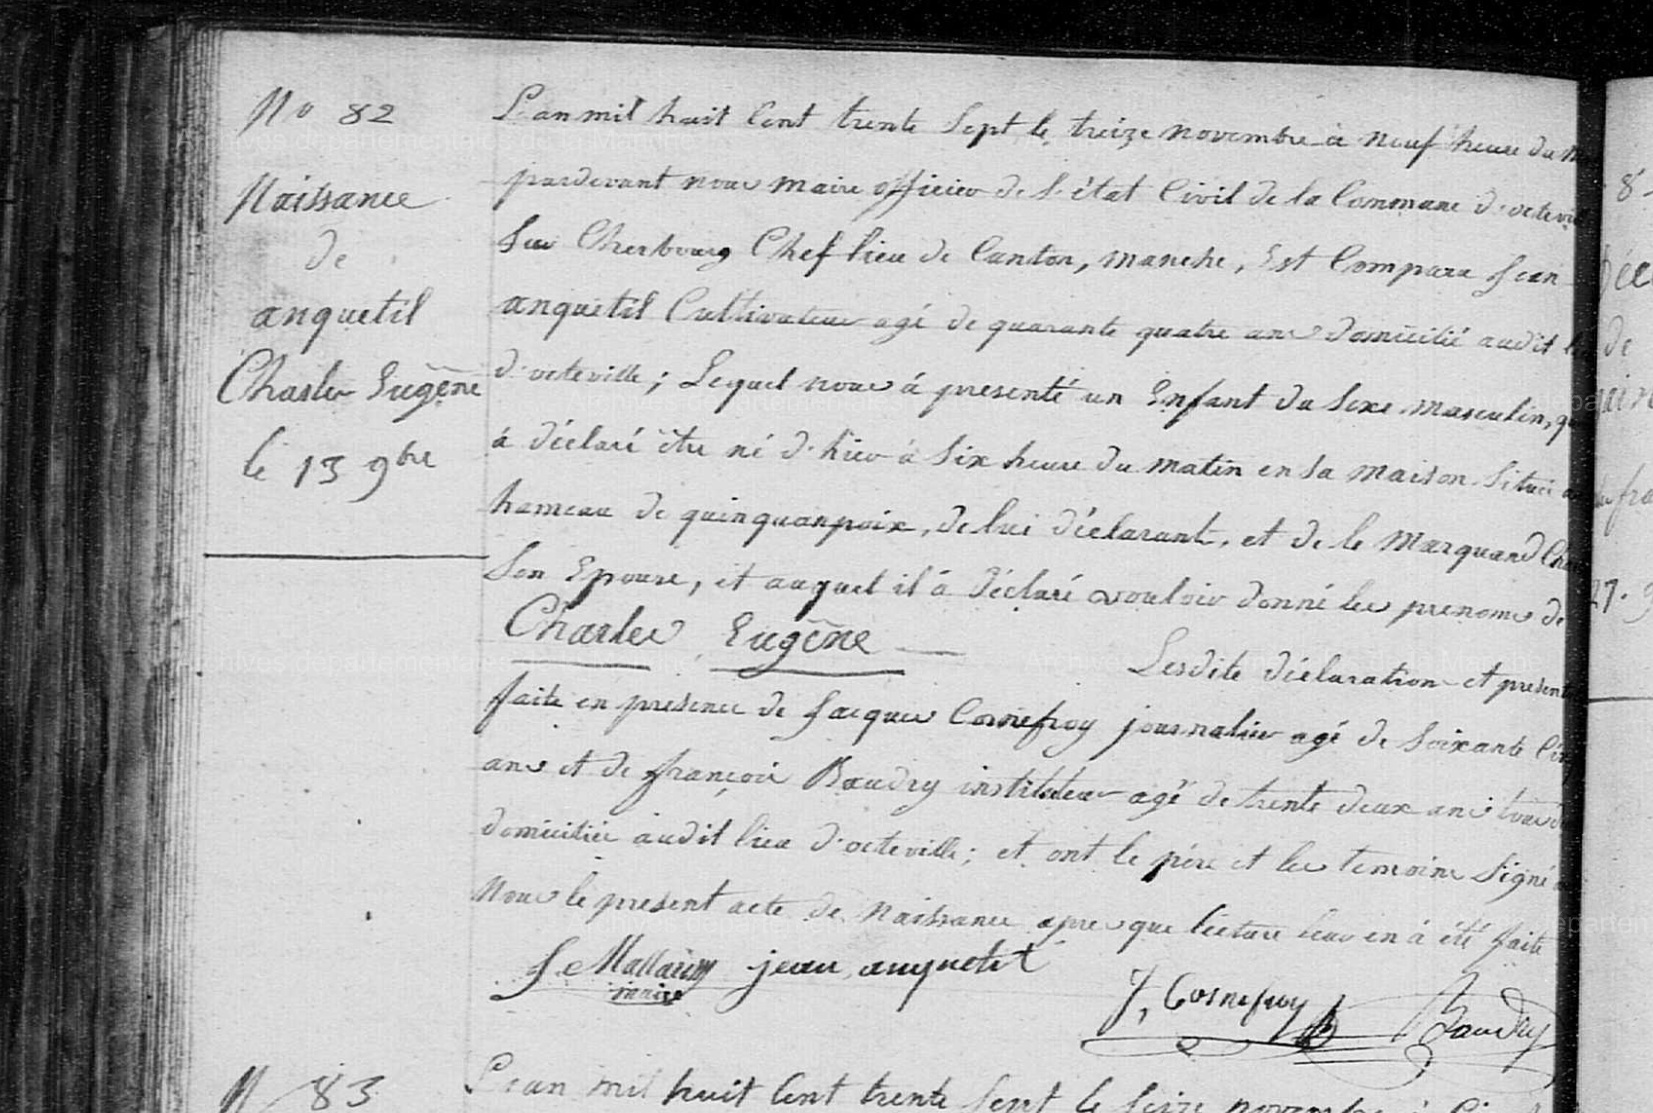 No 82
Naissance
de
anquetil
Charles Eugène
le 13 9bre
L'an mil huit Cent trente Sept le treize novembre à neuf heure du
pardevant nous maire officier de l'état Civil de la Commune d'octevil
Sur Cherbourg Chef lieu de Canton, manche, Est Comparu Jean
anquetil Cultivateur agé de quarante quatre ans domicilié audit
d'octeville; Lequel nous à presenté un Enfant du Sexe masculin, qu
à déclaré être né d'hier à Six heure du matin en sa maison Situé
hameau de quinquanpoix, de lui déclarant, et de le Marquand
Son Epouse, et auquel il à déclaré vouloir donné les prenoms de
Charles Eugène
Lesdite déclaration et present
faite en presence de Jacques Cosnefroy journalier agé de Soixante
ans et de françois Baudry instituteur agé de trente deux ans tous
domiciliés audit lieu d'octeville; et ont le père et les temoins Signé
Nous le present acte de Naissance apres que lecture leur en à été faite
maire
jean anquetil
J, Cosnefroy
Baudry
N 83
L'an mil huit Cent trente Sept le Seize novembre
27.